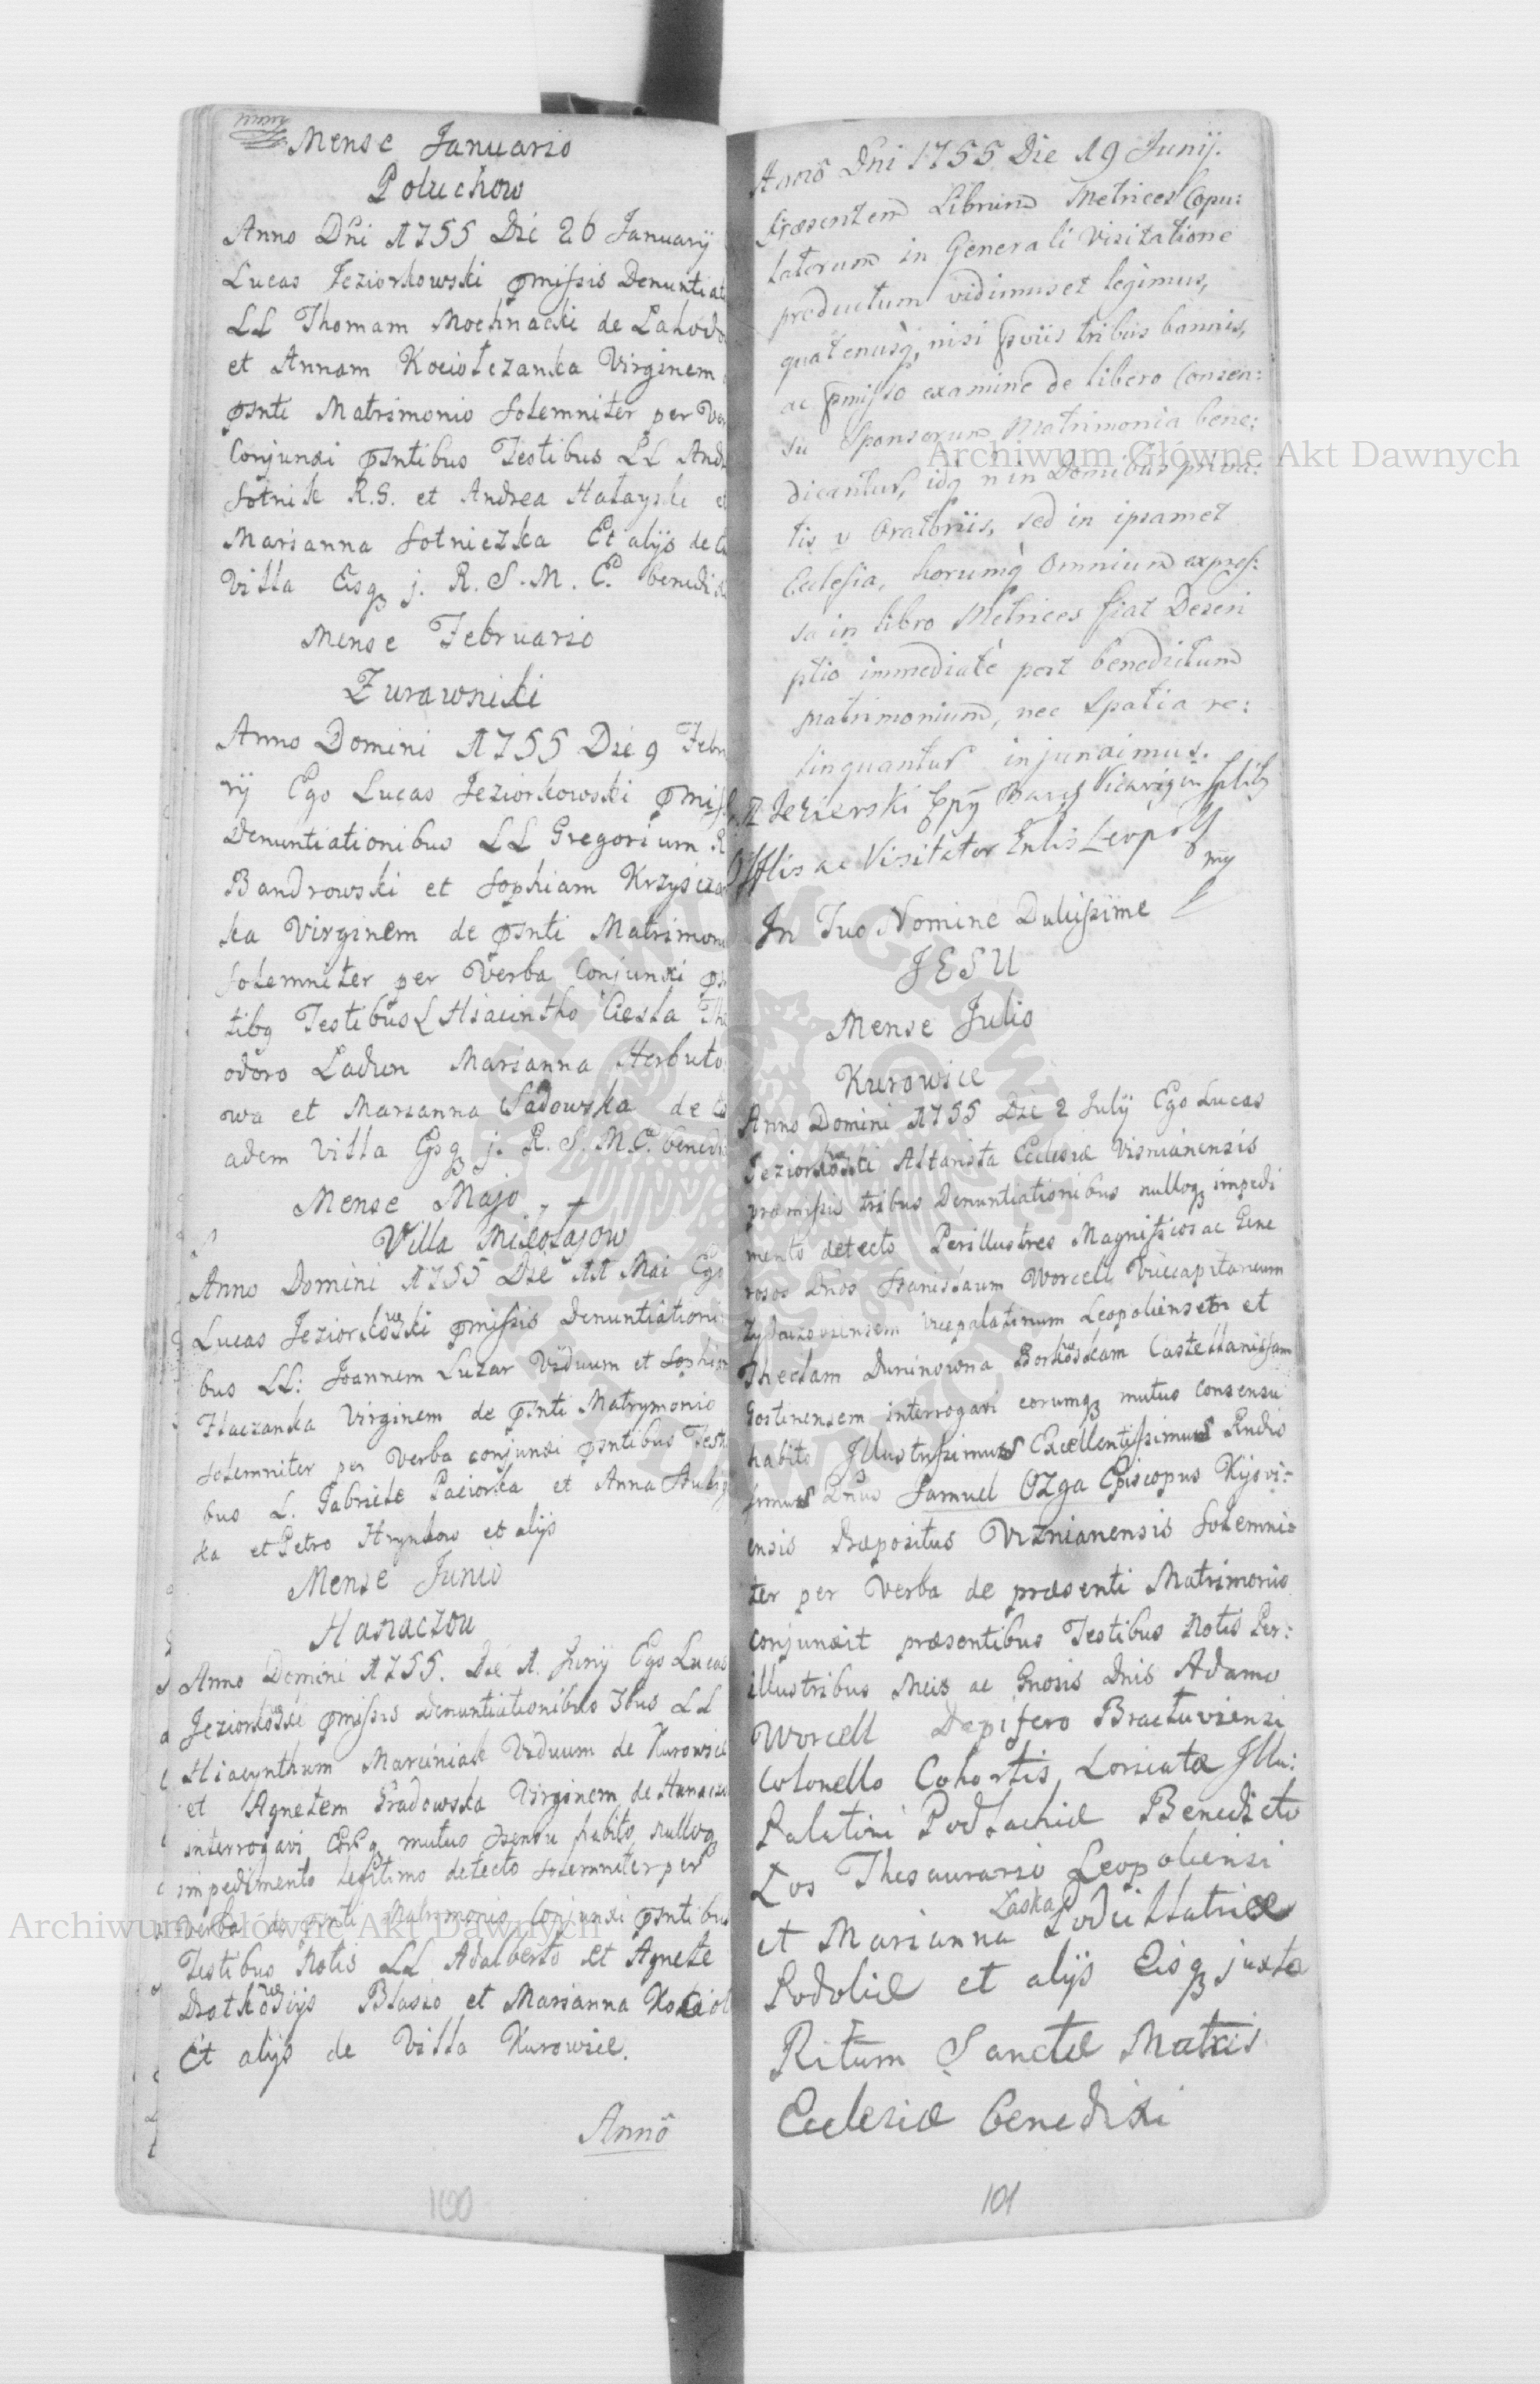 Mense Januario
Poluchow
Anno Dni 1755 Die 26 Januarij
Lucas Jeziorkowski pmissis Denuntiat
LL Thomam Mochnacki de
et Annam Kociołczanka Virginem
psnti Matrimonio Solemniter per
Conjunxi psntibus Testibus LL And
Sotnik R.S. et Andrea Hałayski et
Marianna Sotniczka Et alijs de
Villa Eisq j. R. S. M. E. benedi
Mense Februario
Zurawniki
Anno Domini 1755 Die 9 Febru
rij Ego Lucas Jeziorkowski pmiss
Denuntiationibus LL Gregorium
Bandrowski et Sophiam Krzyscza
ka Virginem de psnti Matrimoni
Solemniter per Verba Conjunxi ps
tibq Testibus L Hiacintho Ciesla The
odoro Ladun Marianna Herbuto
owa et Marianna Sadowska de
adem Villa Eisq j. R. S. M. E. bened
Mense Majo
Villa Mikołajow
Anno Domini 1755 Die 11 Mai Ego
Lucas Jeziorkowski pmissis Denuntiationi
bus LL: Joannem Luzar Viduum et Sophia
Haczanka Virginem de psnti Matrymonio
solemniter per Verba conjunxi psntibus Testi
bus L. Gabriele Paciorka et Anna
ka et Petro Hrynkow et alijs
Mense Junio
Hanaczow
Anno Domini 1755. Die 1. Junij Ego Lucas
Jeziorkowski pmissis Denuntiationibus 3bus LL
Hiacynthum Marciniak Viduum de Kurowice
et Agnetem Gradowska Virginem de Hanaczo
interrogavi Eosq mutuo Psensu habito nulloq
impedimento legitimo detecto solemniter per
Verba de psnti Matrimonio Conjunxi psntibus
Testibus Notis LL Adalberto et Agnete
Blasio et Marianna
Et alijs de Villa Kurowice.
Anno
100
Anno Dni 1755 Die 19 Junij.
Præsentem Librum Metrices Copu:
latorum in Generali Visitatione
productum vidimus et legimus,
quatenusq, nisi pviis tribus bannis,
ac pmisso examine de libero Consen:
su Sponsorum Matrimonia bene:
dicantur, idq n in Domibus priva:
tis v Oratoriis, sed in ipsamet
Ecclesia, horumq Omnium expres:
sa in libro Metrices fiat Descri
ptio immediate post benedictum
matrimonium, nec Spatia re:
linquantur injunximus.
Jezierski Epus
ac Visitator
In Tuo Nomine Dulcissime
JESU
Mense Julio
Kurowice
Anno Domini 1755 Die 2 Julij Ego Lucas
Jeziorkowski Altarista Ecclesiæ Visnianensis
præmissis tribus Denuntiationibus nulloq impedi
mento detecto Perillustres Magnificos ac Gene
rosos Dnos Stanislaum Worcell Vicecapitaneum
Vicepalatinum Leopoliensem et
Theclam Duninowna Borkowskam Castellanissam
Gostinensem interrogavi eorumq mutuo consensu
habito Illustrissimus Excellentissimus Rndis
simus Dnus Samuel OZga Episcopus Kijovi:
ensis Præpositus Viznianensis Solemni=
ter per Verba de præsenti Matrimonio
conjunxit præsentibus Testibus Notis Per:
illustribus Mcis ac Gnosis Dnis Adamo
Worcell Dapifero Bractaviensi
Colonello Cohortis Loricatæ Illu:
Palatini Podlachiæ Benedicto
Łos Thesaurario Leopoliensi
Łaska
et Marianna
Podoliæ et alijs Eisq juxta
Ritum Sanctæ Matris
Ecclesiæ benedixi
101
Archiwum Główne Akt Dawnych
Archiwum Główne Akt Dawnych
ARCHIWUM GŁÓWNE AKT DAWNYCH